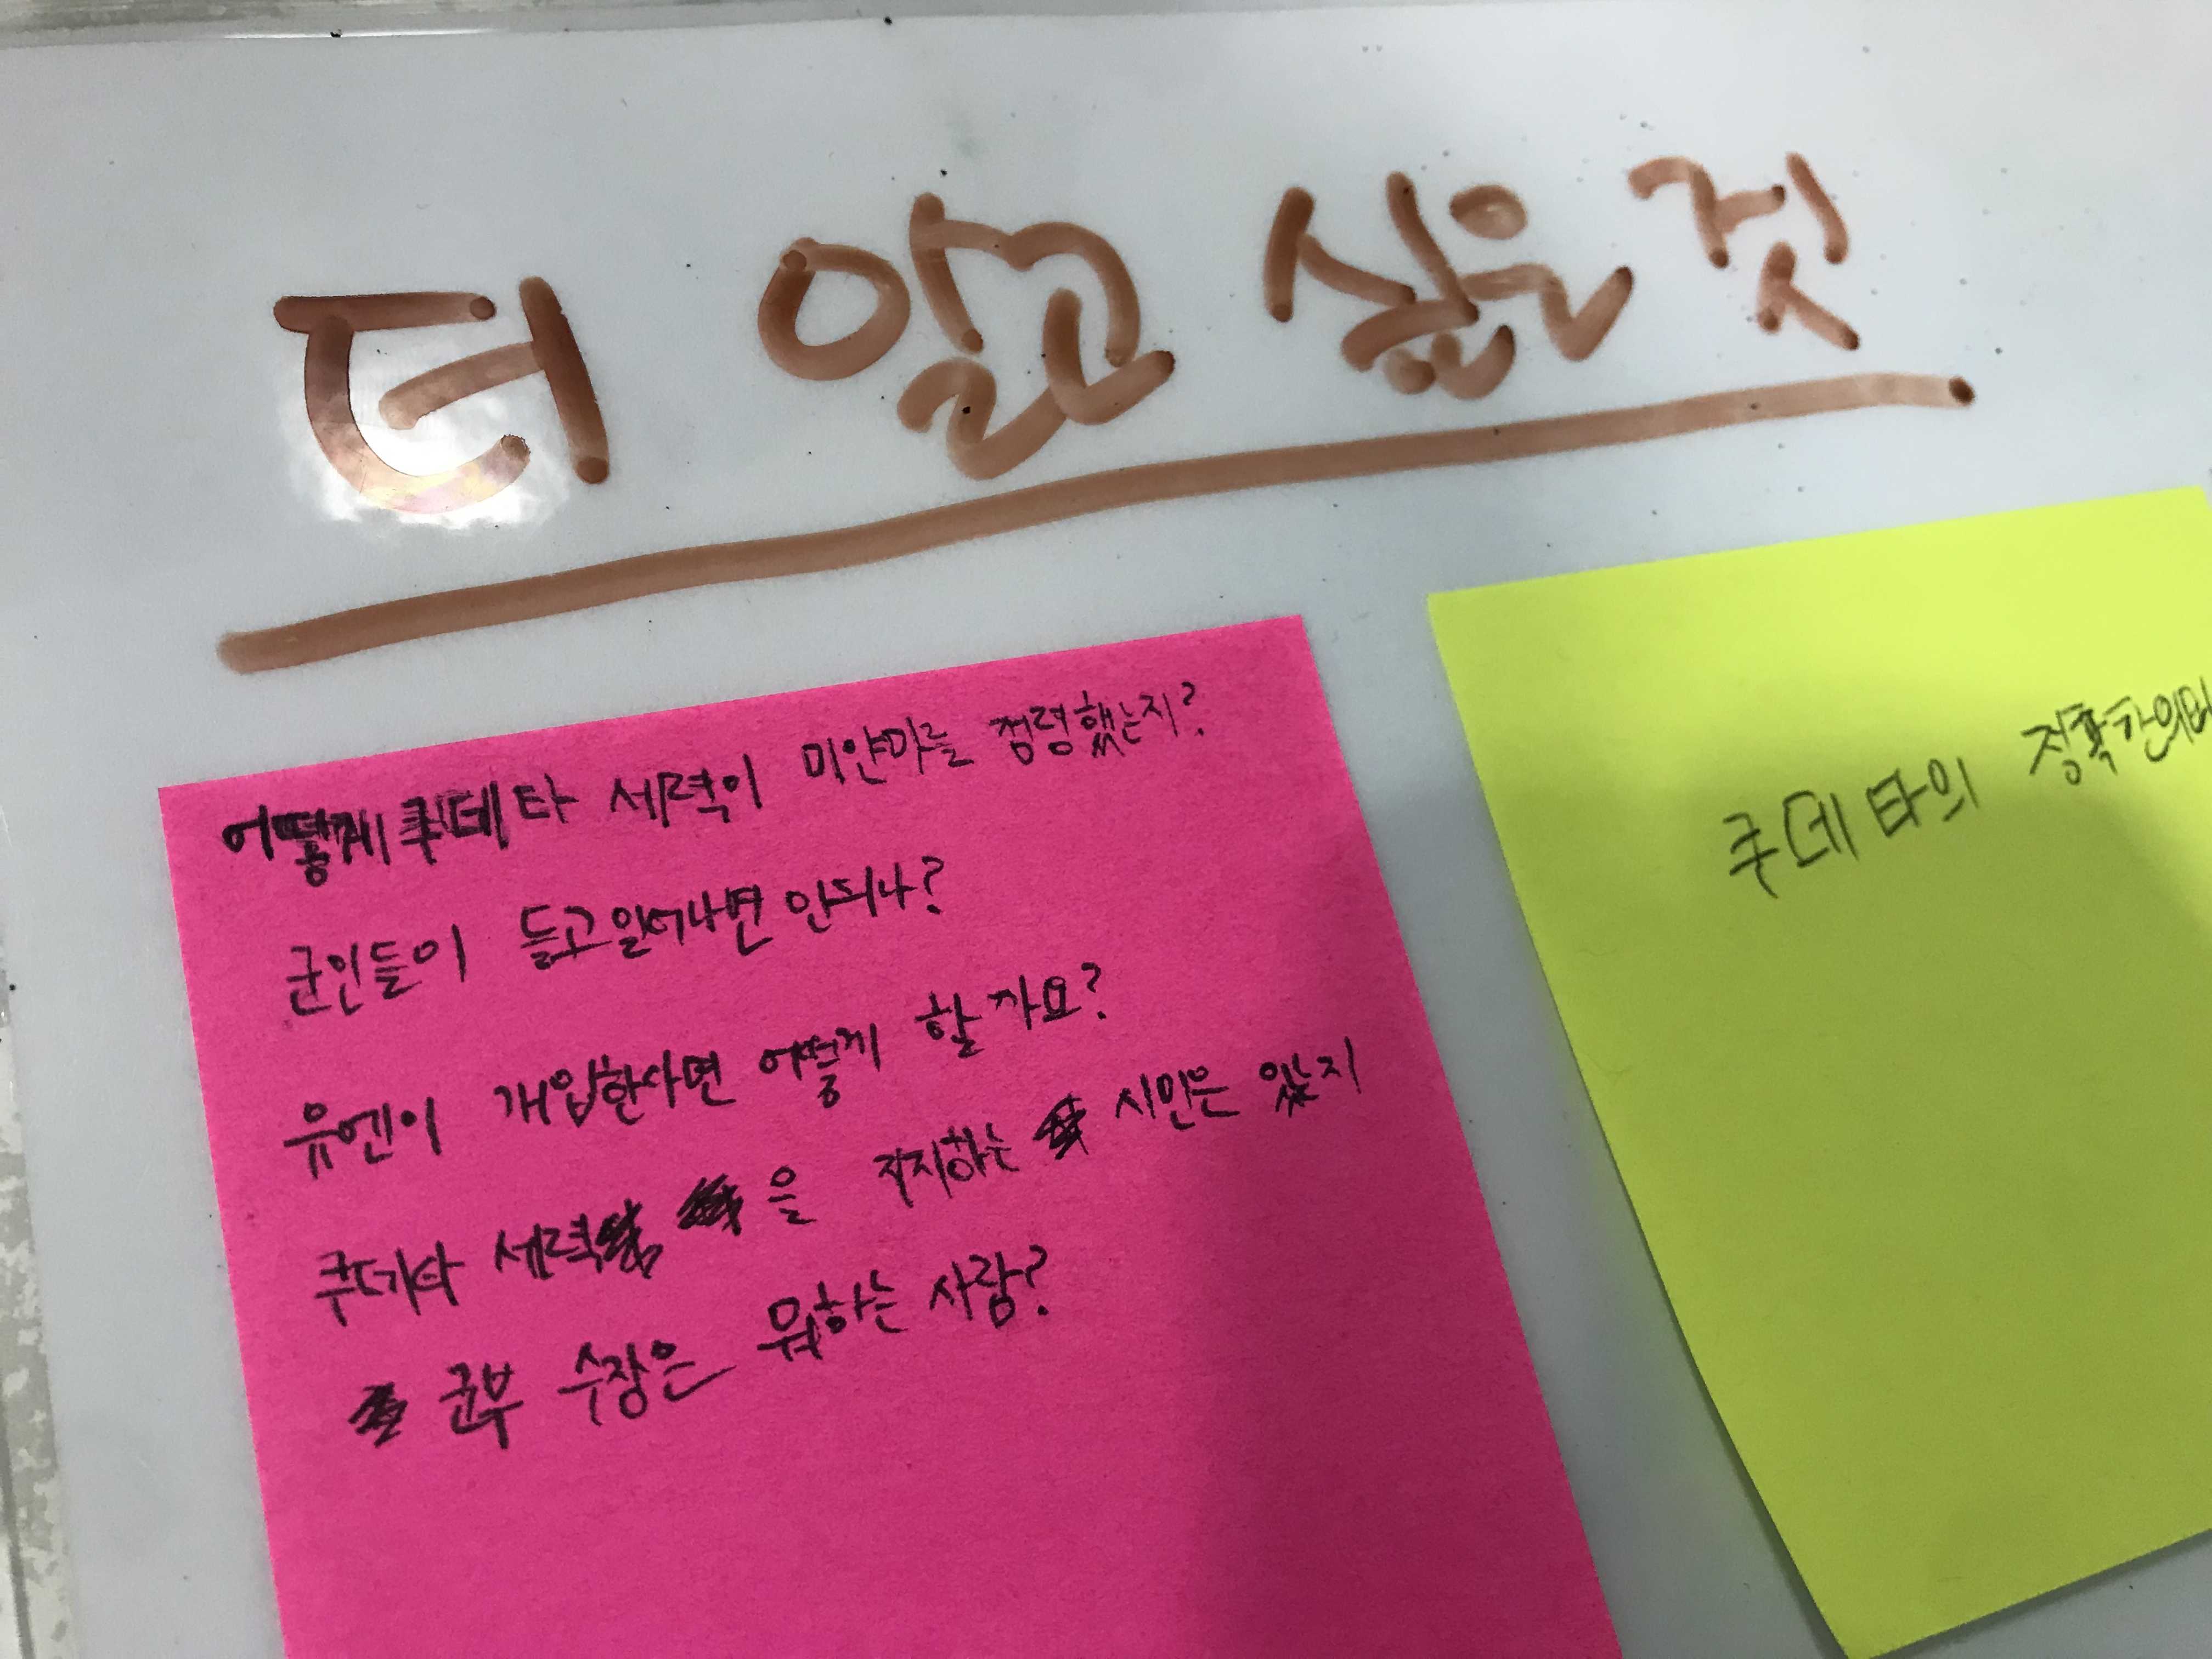 더 알고 싶은 것
어떻게 쿠데타 세력이 미얀마를 점령했는지?
군인들이 들고일어나면 안되나?
유엔이 개입한다면 어떻게 할까요?
쿠데타 세력을 지지하는 시민은 있는지
군부 수장은 뭐하는 사람?
쿠데타의 정확한의미